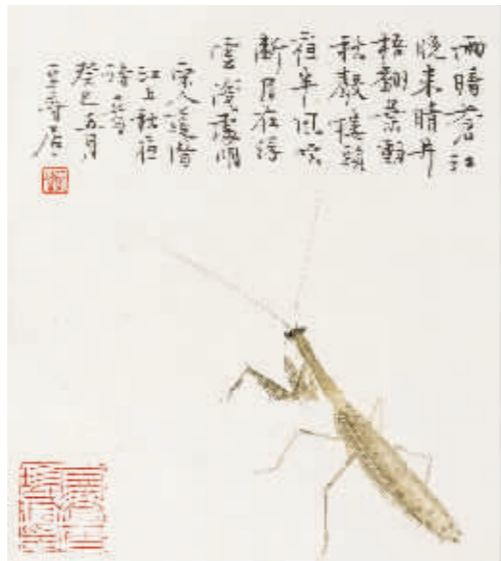 雨暗蒼江
晚未晴井
梧翻葉動
秋聲樓頭
夜半風吹
斷月在浮
雲淺處明
宋人道潛
江上秋夜
詩意
癸巳五月